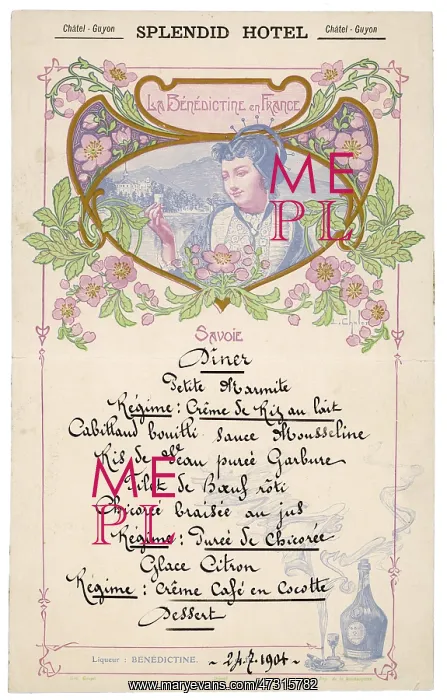 Châtel - Guyon SPLENDID HOTEL Châtel - Guyon
LA BÉNÉDICTINE EN FRANCE
ME
PL
SAVOIE
Dîner
Petite Marmite
Régime : Crême de Riz au lait
Cabillaud bouilli sauce Mousseline
Ris de Veau purée Garbure
ME
Filet de Bœuf rôti
Chicorée braisée au jus
PL
Régime : Purée de Chicorée
Glace Citron
Régime : Crême Café en Cocotte
Dessert
Liqueur : BÉNÉDICTINE. - 24.7.1904 -
www.maryevans.com/47315782